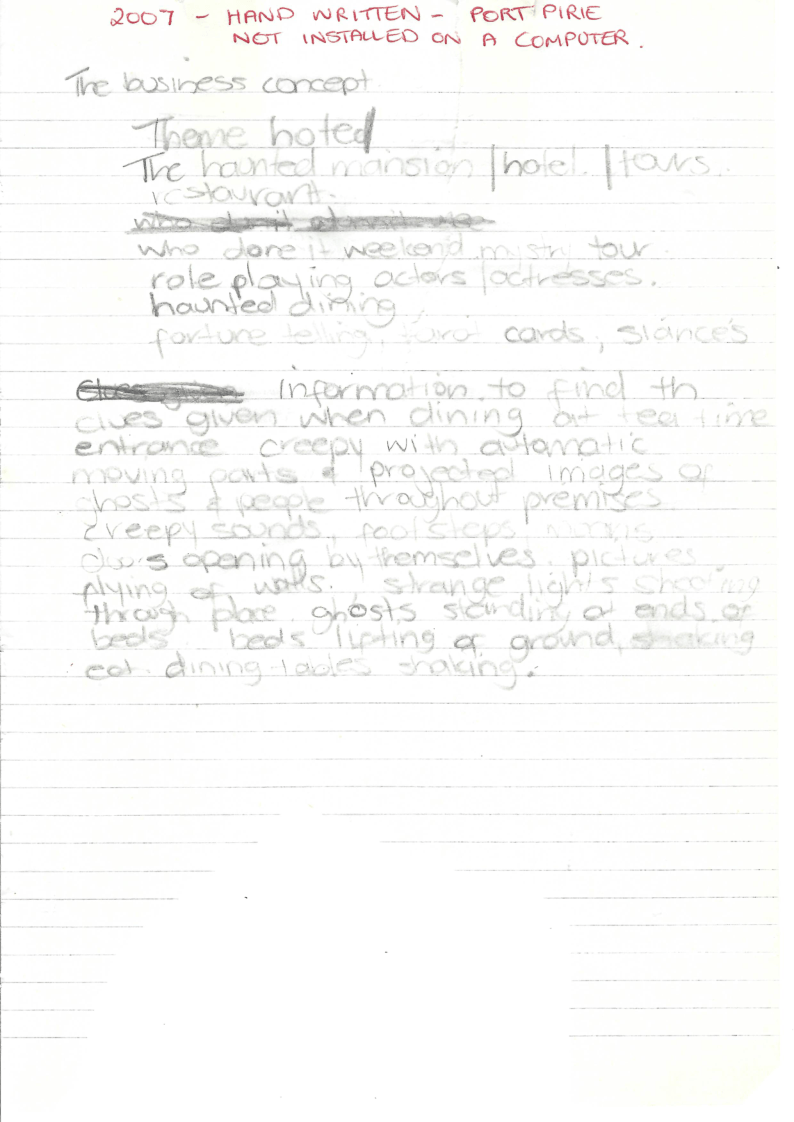 2007 - HAND WRITTEN - PORT PIRIE
NOT INSTALLED ON A COMPUTER.
The business concept
Theme hotel
The haunted mansion | hotel. | tours.
restaurant.
who done it weekend mystry tour
role playing actors | actresses.
haunted dining,
fortune telling, tarot cards, siánce's
Information to find th
clues given when dining at tea time
entrance creepy with automatic
moving parts & projected images of
ghosts & people throughout premises
creepy sounds, footsteps
doors opening by themselves. pictures
flying of walls. strange lights shooting
through place ghosts standing at ends of
beds beds lifting of ground, shaking
eat dining tables shaking.